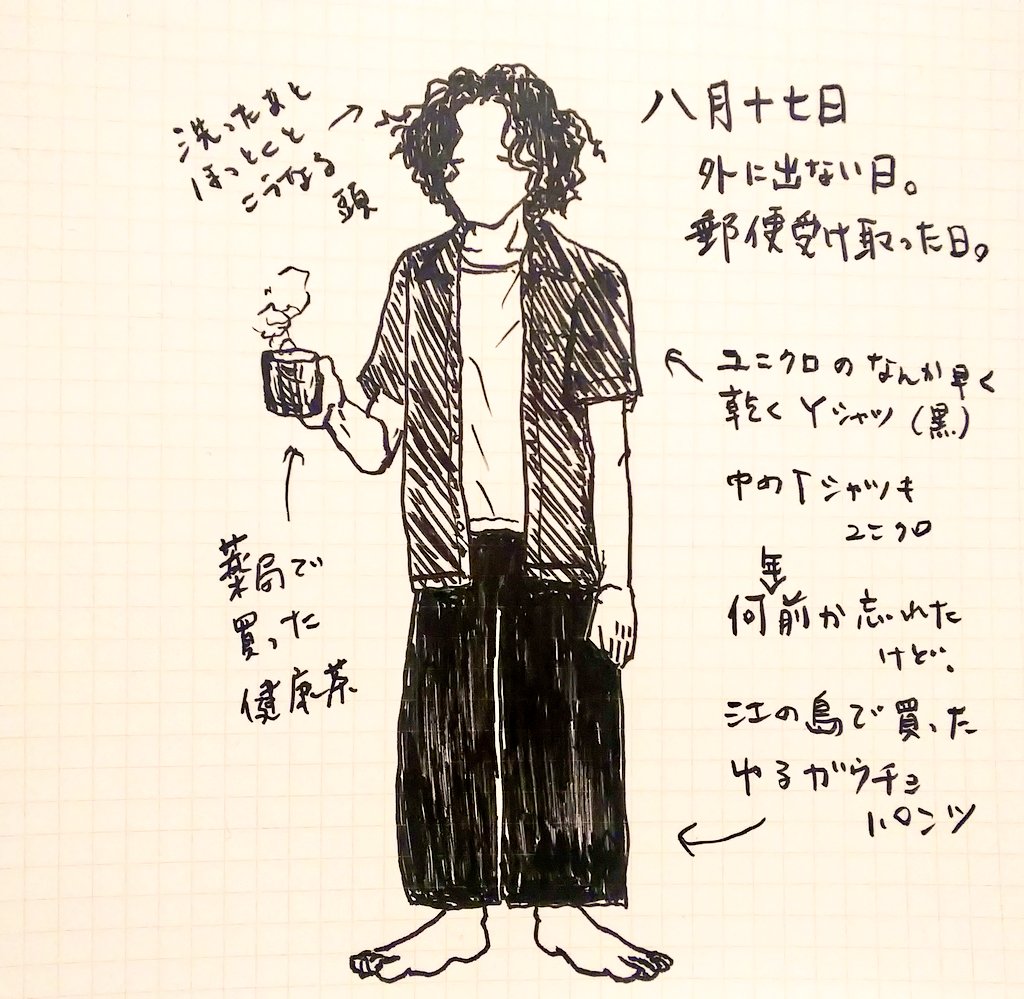 八月十七日
外に出ない日。
郵便受け取った日。
洗ったあと
ほっとくと
こうなる
頭
ユニクロのなんか早く
乾くYシャツ(黒)
中のTシャツも
ユニクロ
年
何前か忘れた
けど、
江の島で買った
ゆるガウチョ
パンツ
薬局で
買った
健康茶